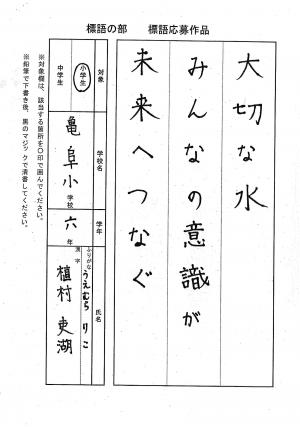 標語の部　標語応募作品
大切な水
みんなの意識が
未来へつなぐ
対象
小学生
中学生
学校名
亀阜小学校
学年
六年
氏名
ふりがな
うえむら りこ
漢字
植村 吏湖
※対象欄は、該当する箇所を〇印で囲んでください。
※鉛筆で下書き後、黒のマジックで清書してください。